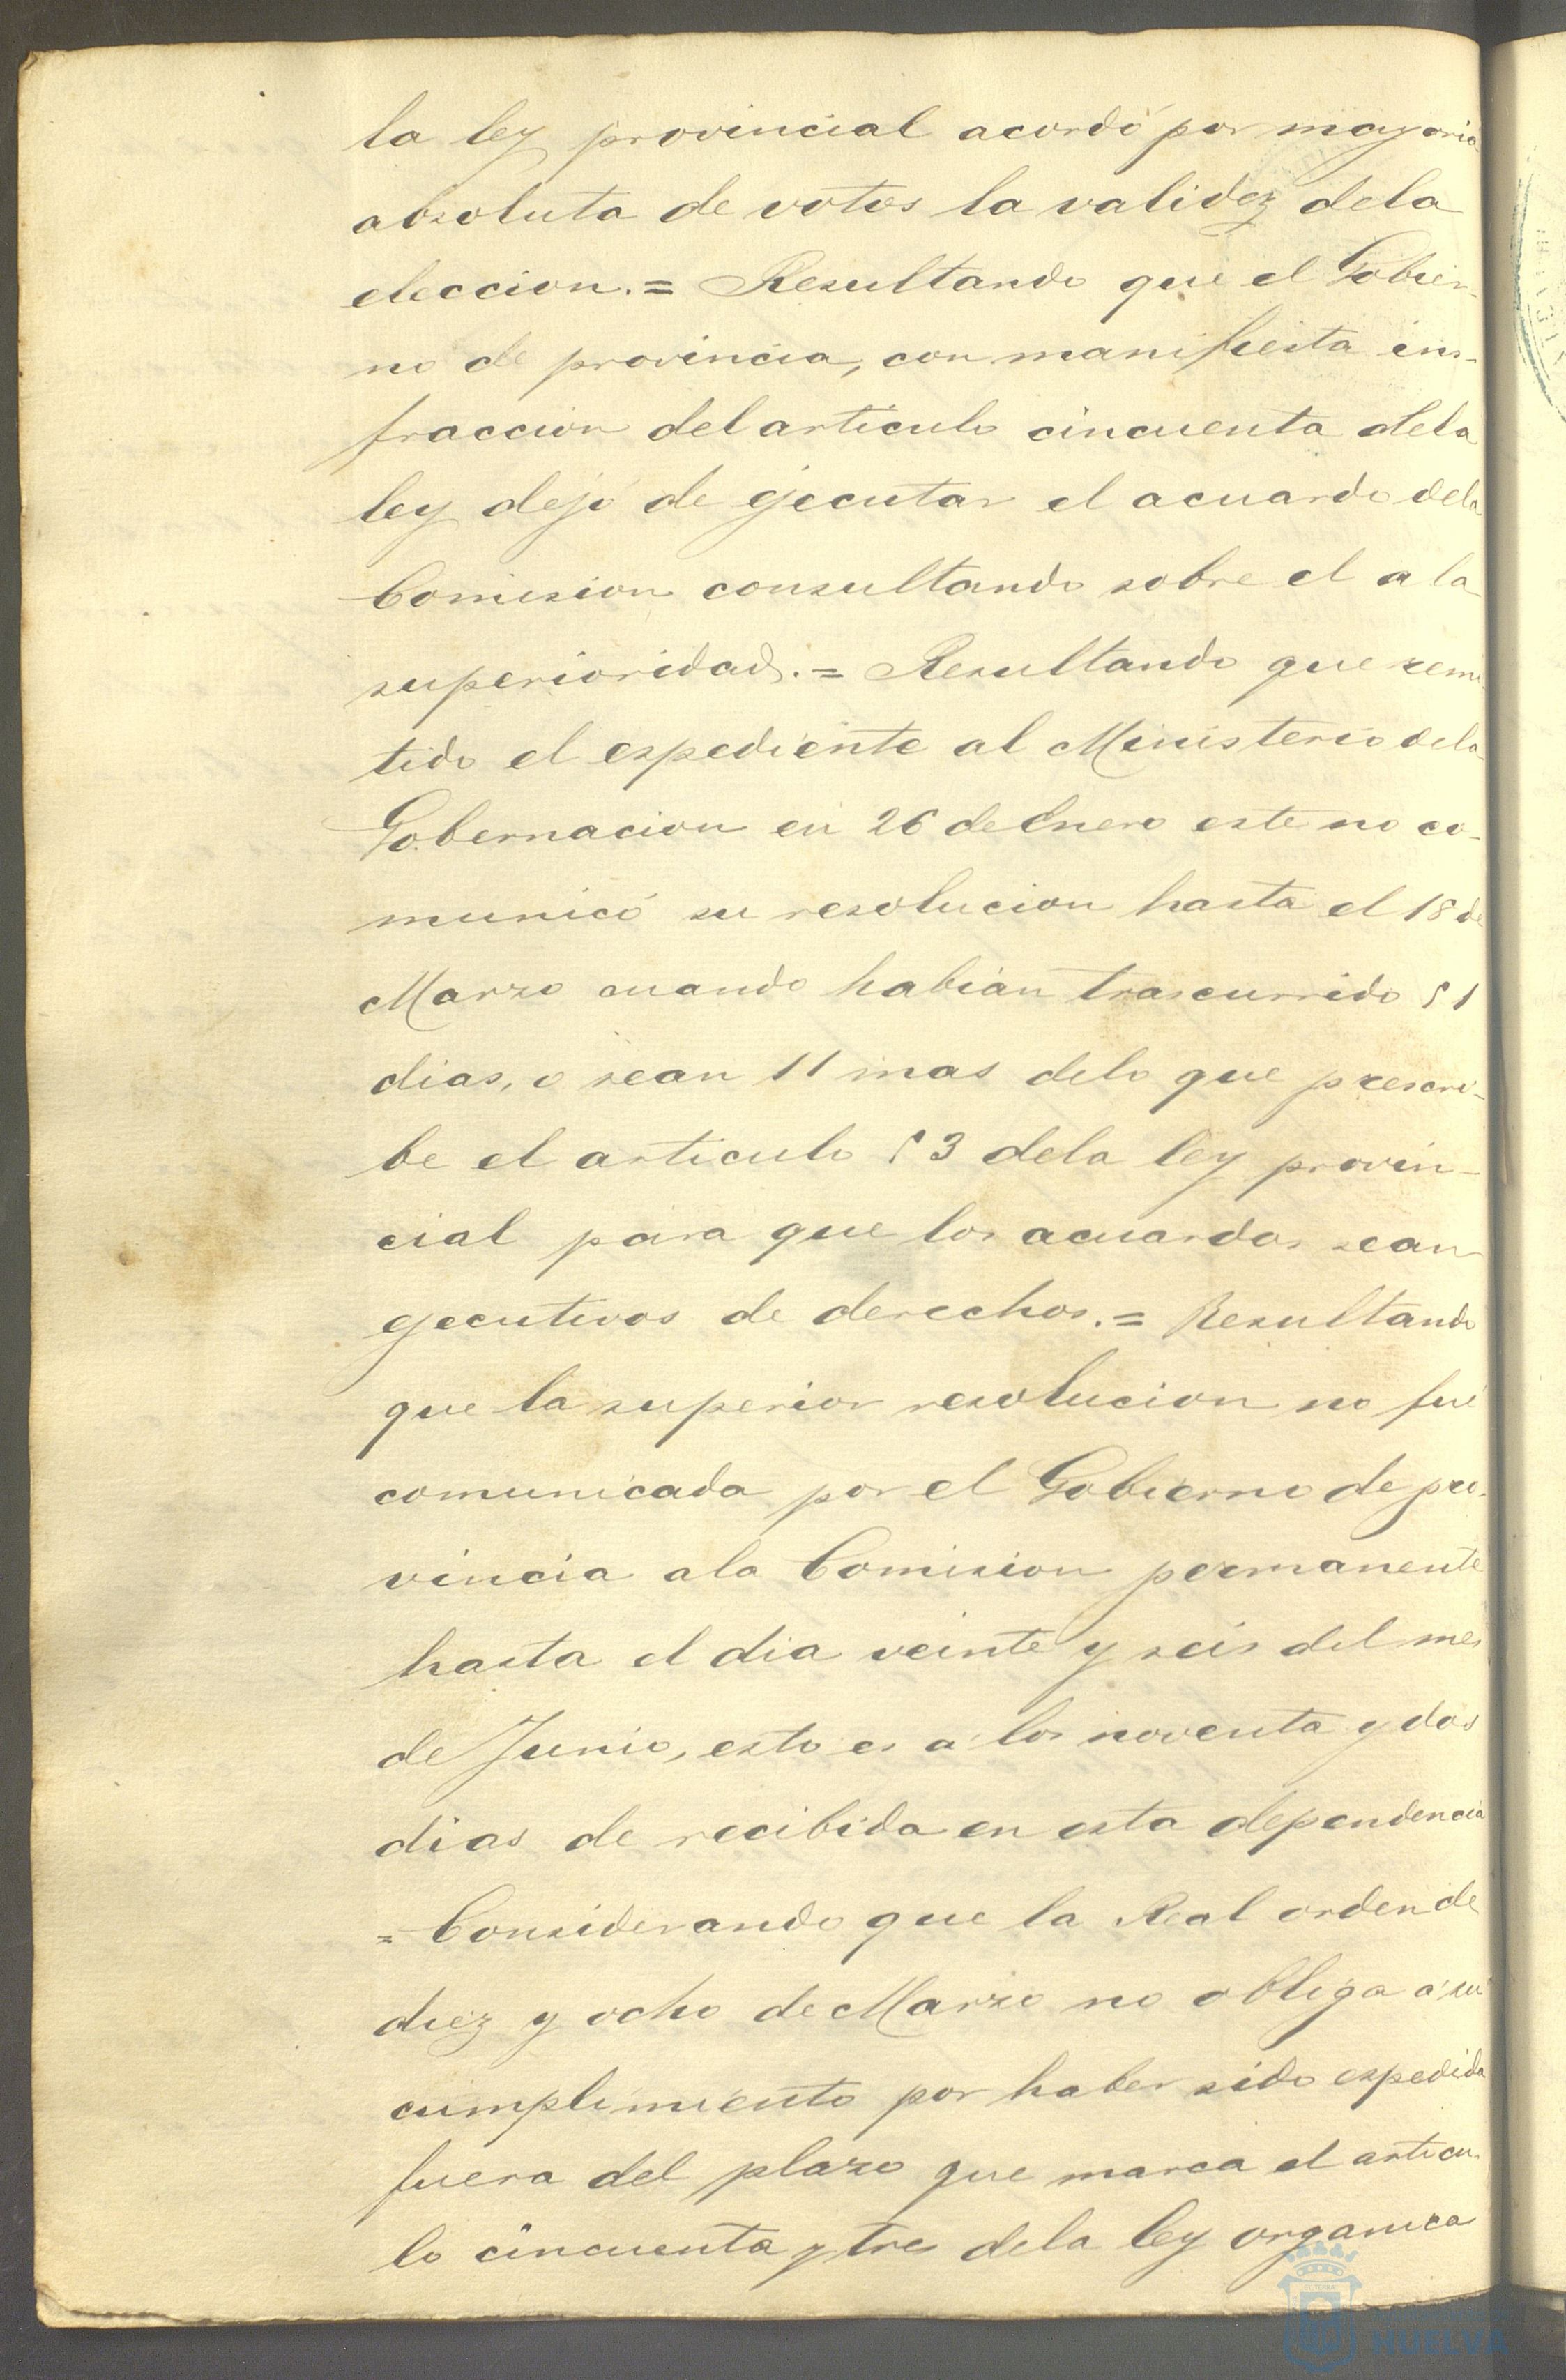 la ley provincial acordó por mayoria
absoluta de votos la validez dela
eleccion.= Resultando que el Gobier-
no de provincia, con manifiesta ins-
fraccion del articulo cincuenta dela
ley dejó de ejecutar el acuardo dela
Comision consultando sobre el a la
superioridad.= Resultando que remi-
tido el espediente al Ministerio dela
Gobernacion en 26 de Enero este no co-
municó su resolucion hasta el 18 de
Marzo cuando habian trascurrido 51
dias, o sean 11 mas delo que prescri-
be el articulo 53 dela ley provin-
cial para que los acuardos sean
ejecutivos de derechos.= Resultando
que la superior resolucion no fué
comunicada por el Gobierno de pro-
vincia ala Comision permanente
hasta el dia veinte y seis del mes
de Junio, esto es a los noventa y dos
dias de recibida en esta dependencia
= Considerando que la Real orden de
diez y ocho de Marzo no obliga á su
cumplimiento por haber sido espedida
fuera del plazo que marca el articu-
lo cincuenta y tres dela ley organica
HUELVA